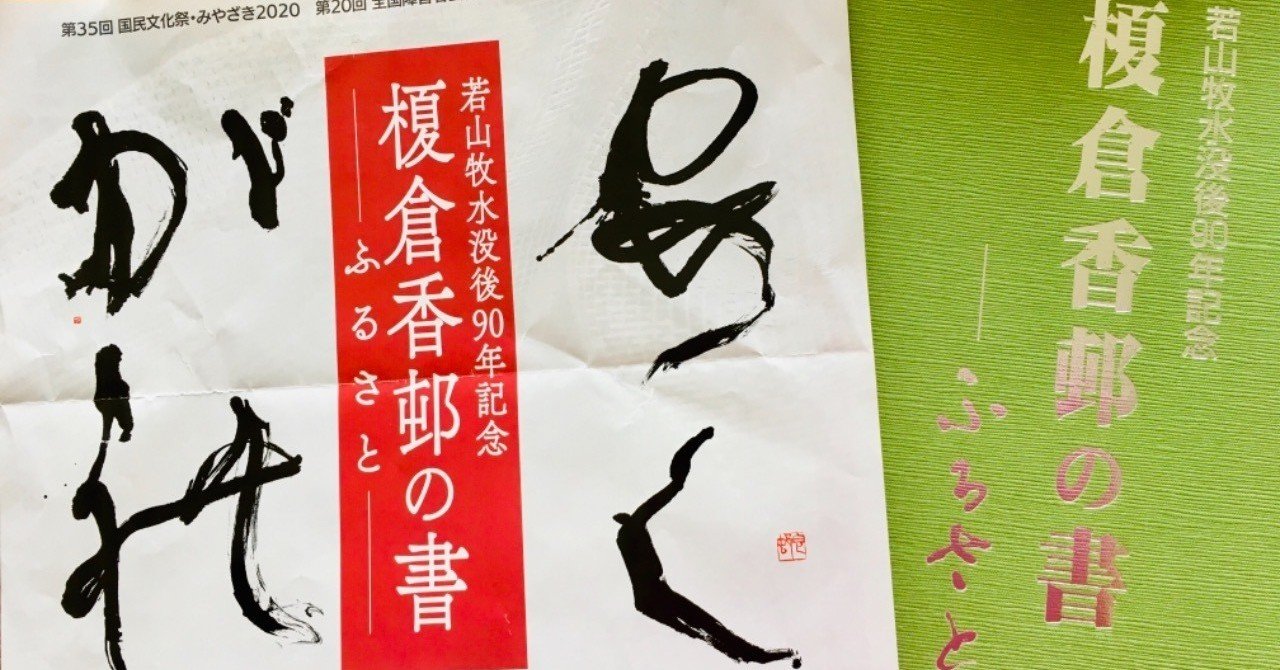 第35回 国民文化祭・みやざき2020 第20回 全国障害者
若山牧水没後90年記念
榎倉香邨の書
―ふるさと―
若山牧水没後90年記念
榎倉香邨の書
―ふるさと